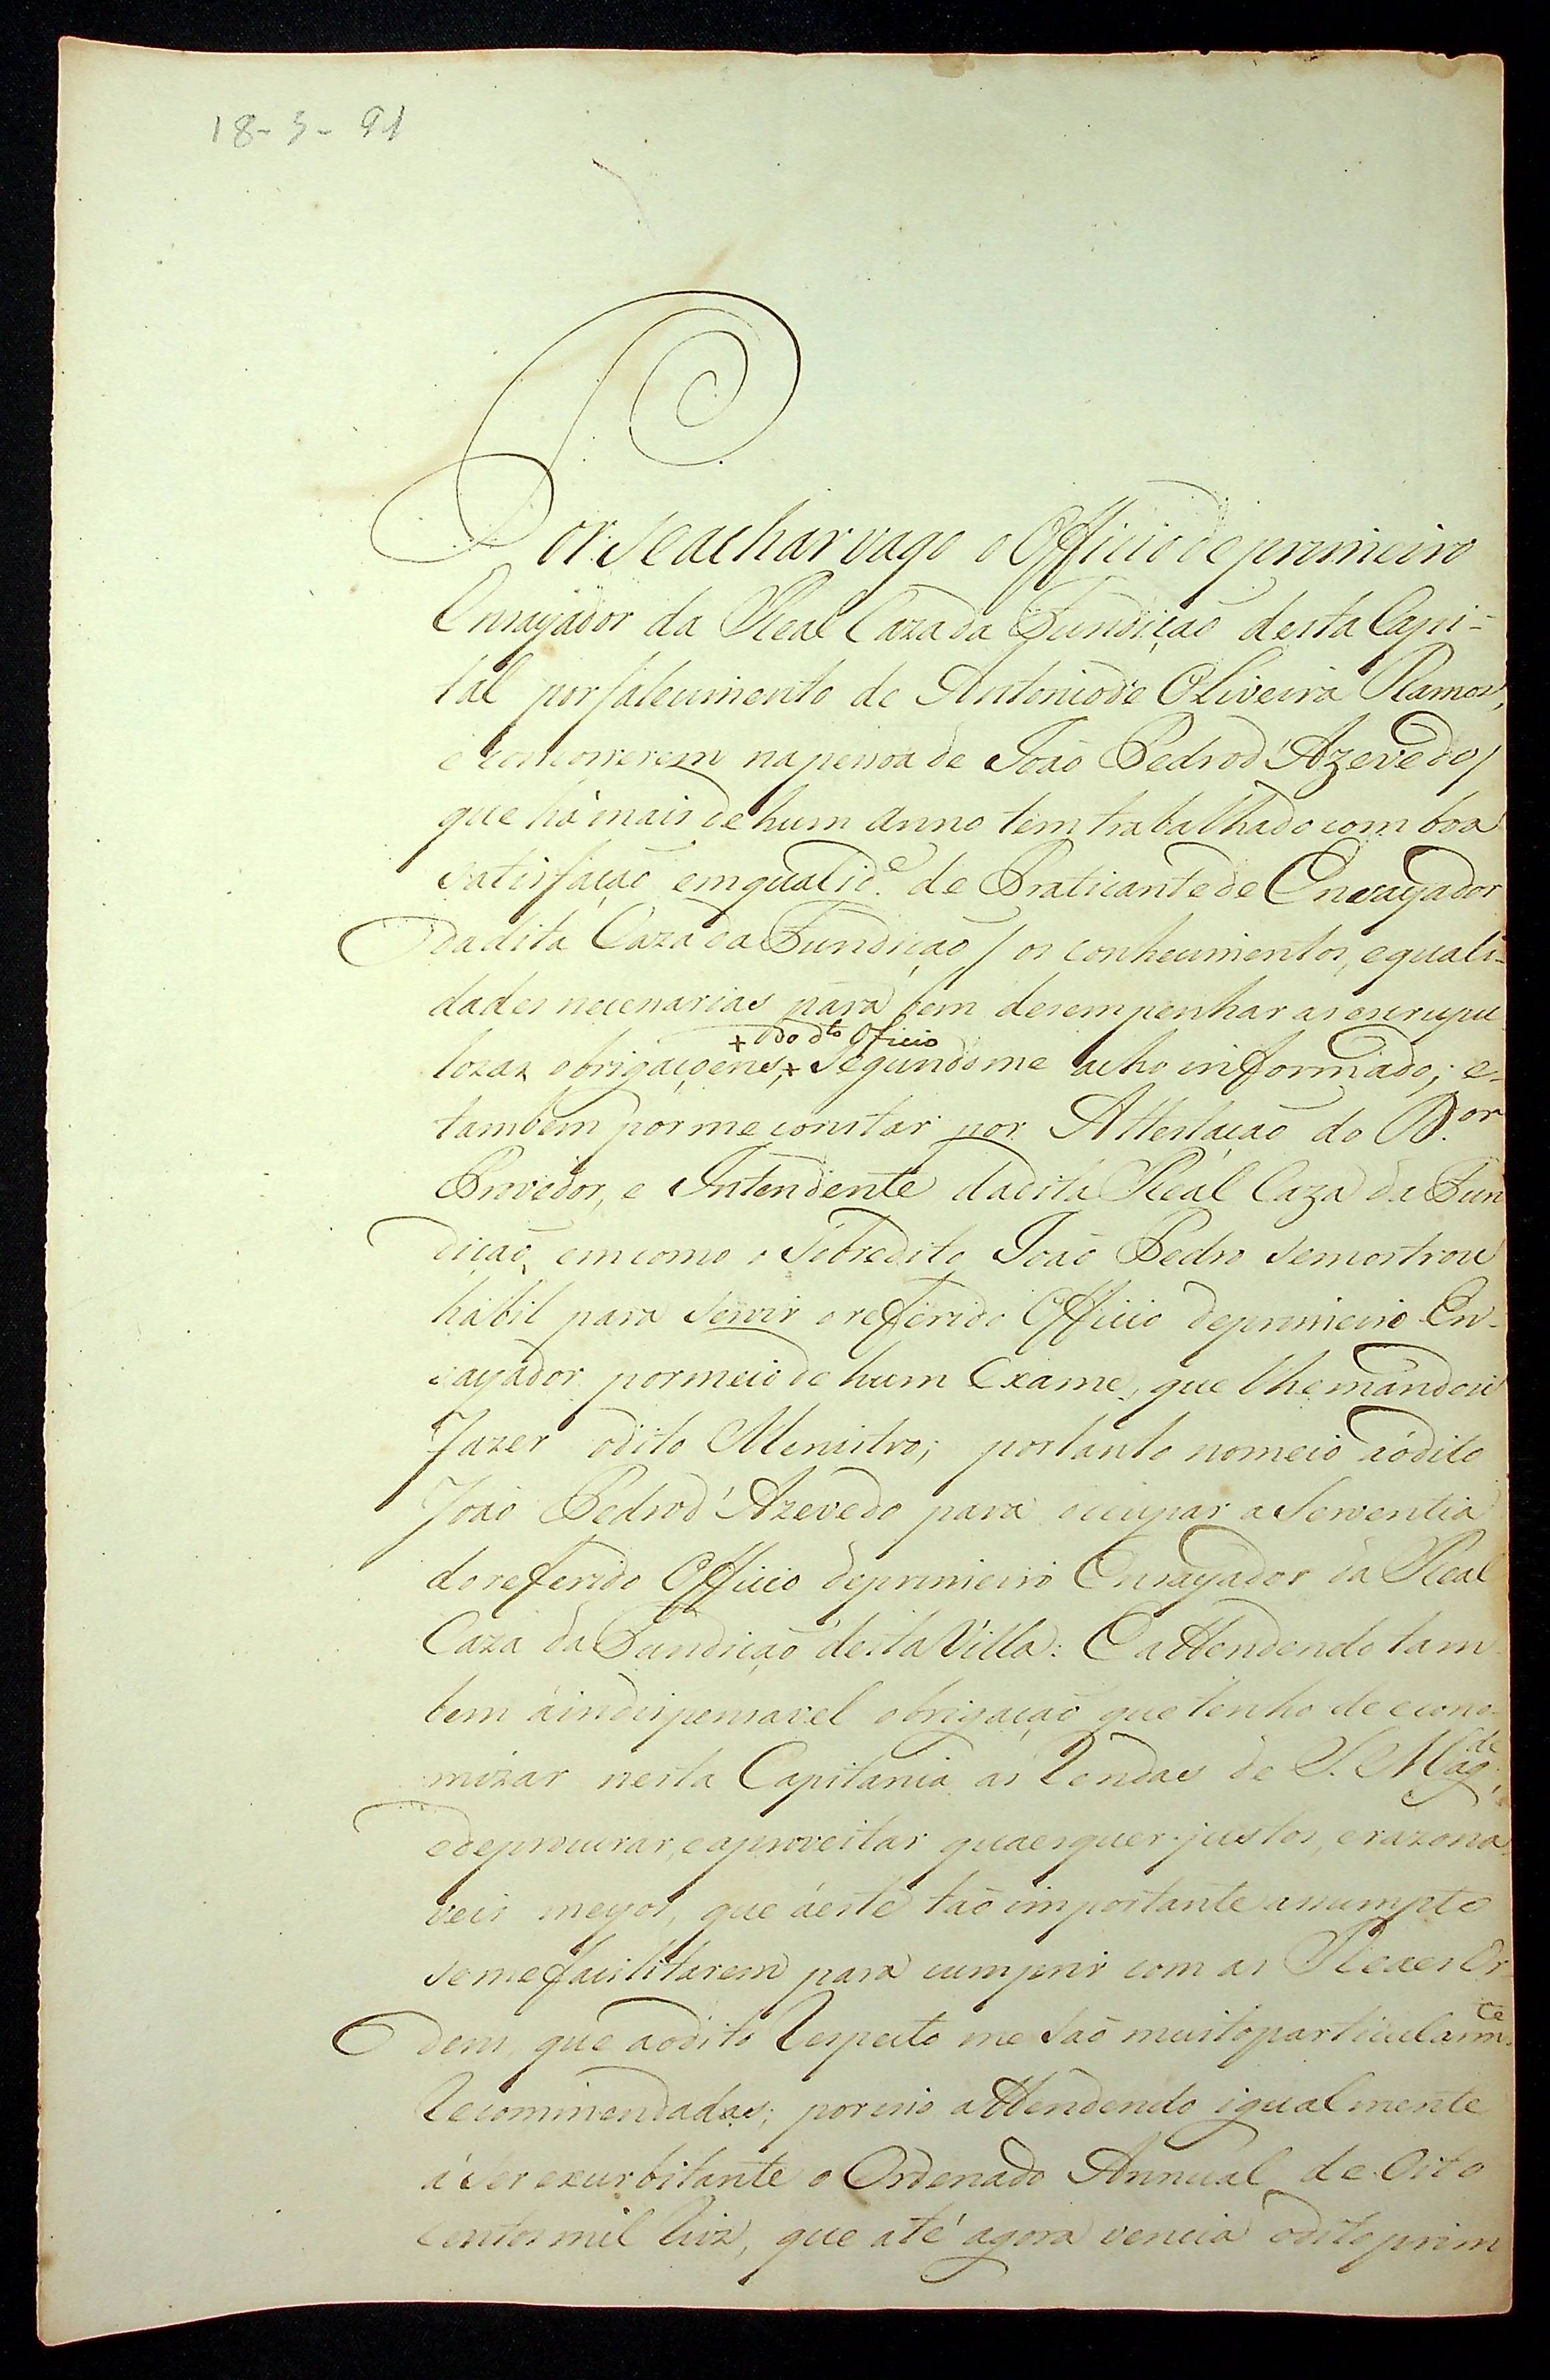 18-5-91
Por se achar vago o Officio de primeiro
Ensayador da Real Caza da Fundiçaõ desta Capi-
tal por falecimento de Antonio de Oliveira Ramos,
e concorrerem na pessoa de Joaõ Pedro d'Azevedo /
que há mais de hum anno tem trabalhado com boa
satisfaçaõ em qualid.e de Praticante de Ensayador
da dita Caza da Fundiçaõ / os conhecimentos, e quali-
dades necessarias para bem desempenhar as escrupu
+ do d.to Oficio
lozas obrigaçoens,+ segundo me acho informado; e-
tambem por me constar por Attestaçaõ do D.or
Provedor, e Intendente da dita Real Caza da Fun
diçaõ, em como o Sobredito Joaõ Pedro se mostrou
habil para servir o referido Officio de primeiro En-
sayador por meio de hum Exame, que lhe mandou
fazer o dito Menistro; portanto nomeio ao dito
Joaõ Pedro d'Azevedo para occupar a Serventia
do referido Officio de primeiro Ensayador da Real
Caza da Fundiçaõ desta Villa: E attendendo tam
bem á indispensavel obrigaçaõ que tenho de econo-
mizar nesta Capitania as Rendas de S. Mag.de,
e de procurar, e aproveitar quaesquer justos, e razona
veis meyos, que á este taõ importante assumpto
se me facilitarem para cumprir com as Reaes Or-
dens, que ao dito Respeito me saõ muito particularm.te
Recommendadas; por isso attendendo igualmente
á ser exurbitante o Ordenado Annual de Oito
centos mil Reiz, que até agora vencia o dito prim